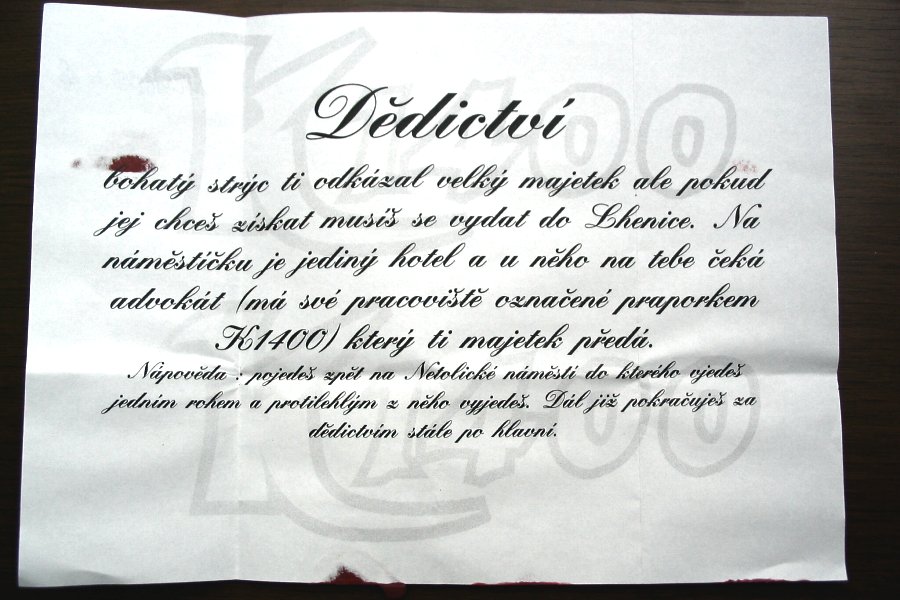 Dědictví
bohatý strýc ti odkázal velký majetek ale pokud
jej chceš získat musíš se vydat do Lhenice. Na
náměstíčku je jediný hotel a u něho na tebe čeká
advokát (má své pracoviště označené praporkem
K1400) který ti majetek předá.
Nápověda : pojedeš zpět na Netolické náměstí do kterého vjedeš
jedním rohem a protilehlým z něho vyjedeš. Dál již pokračuješ za
dědictvím stále po hlavní.
K1400
K1400